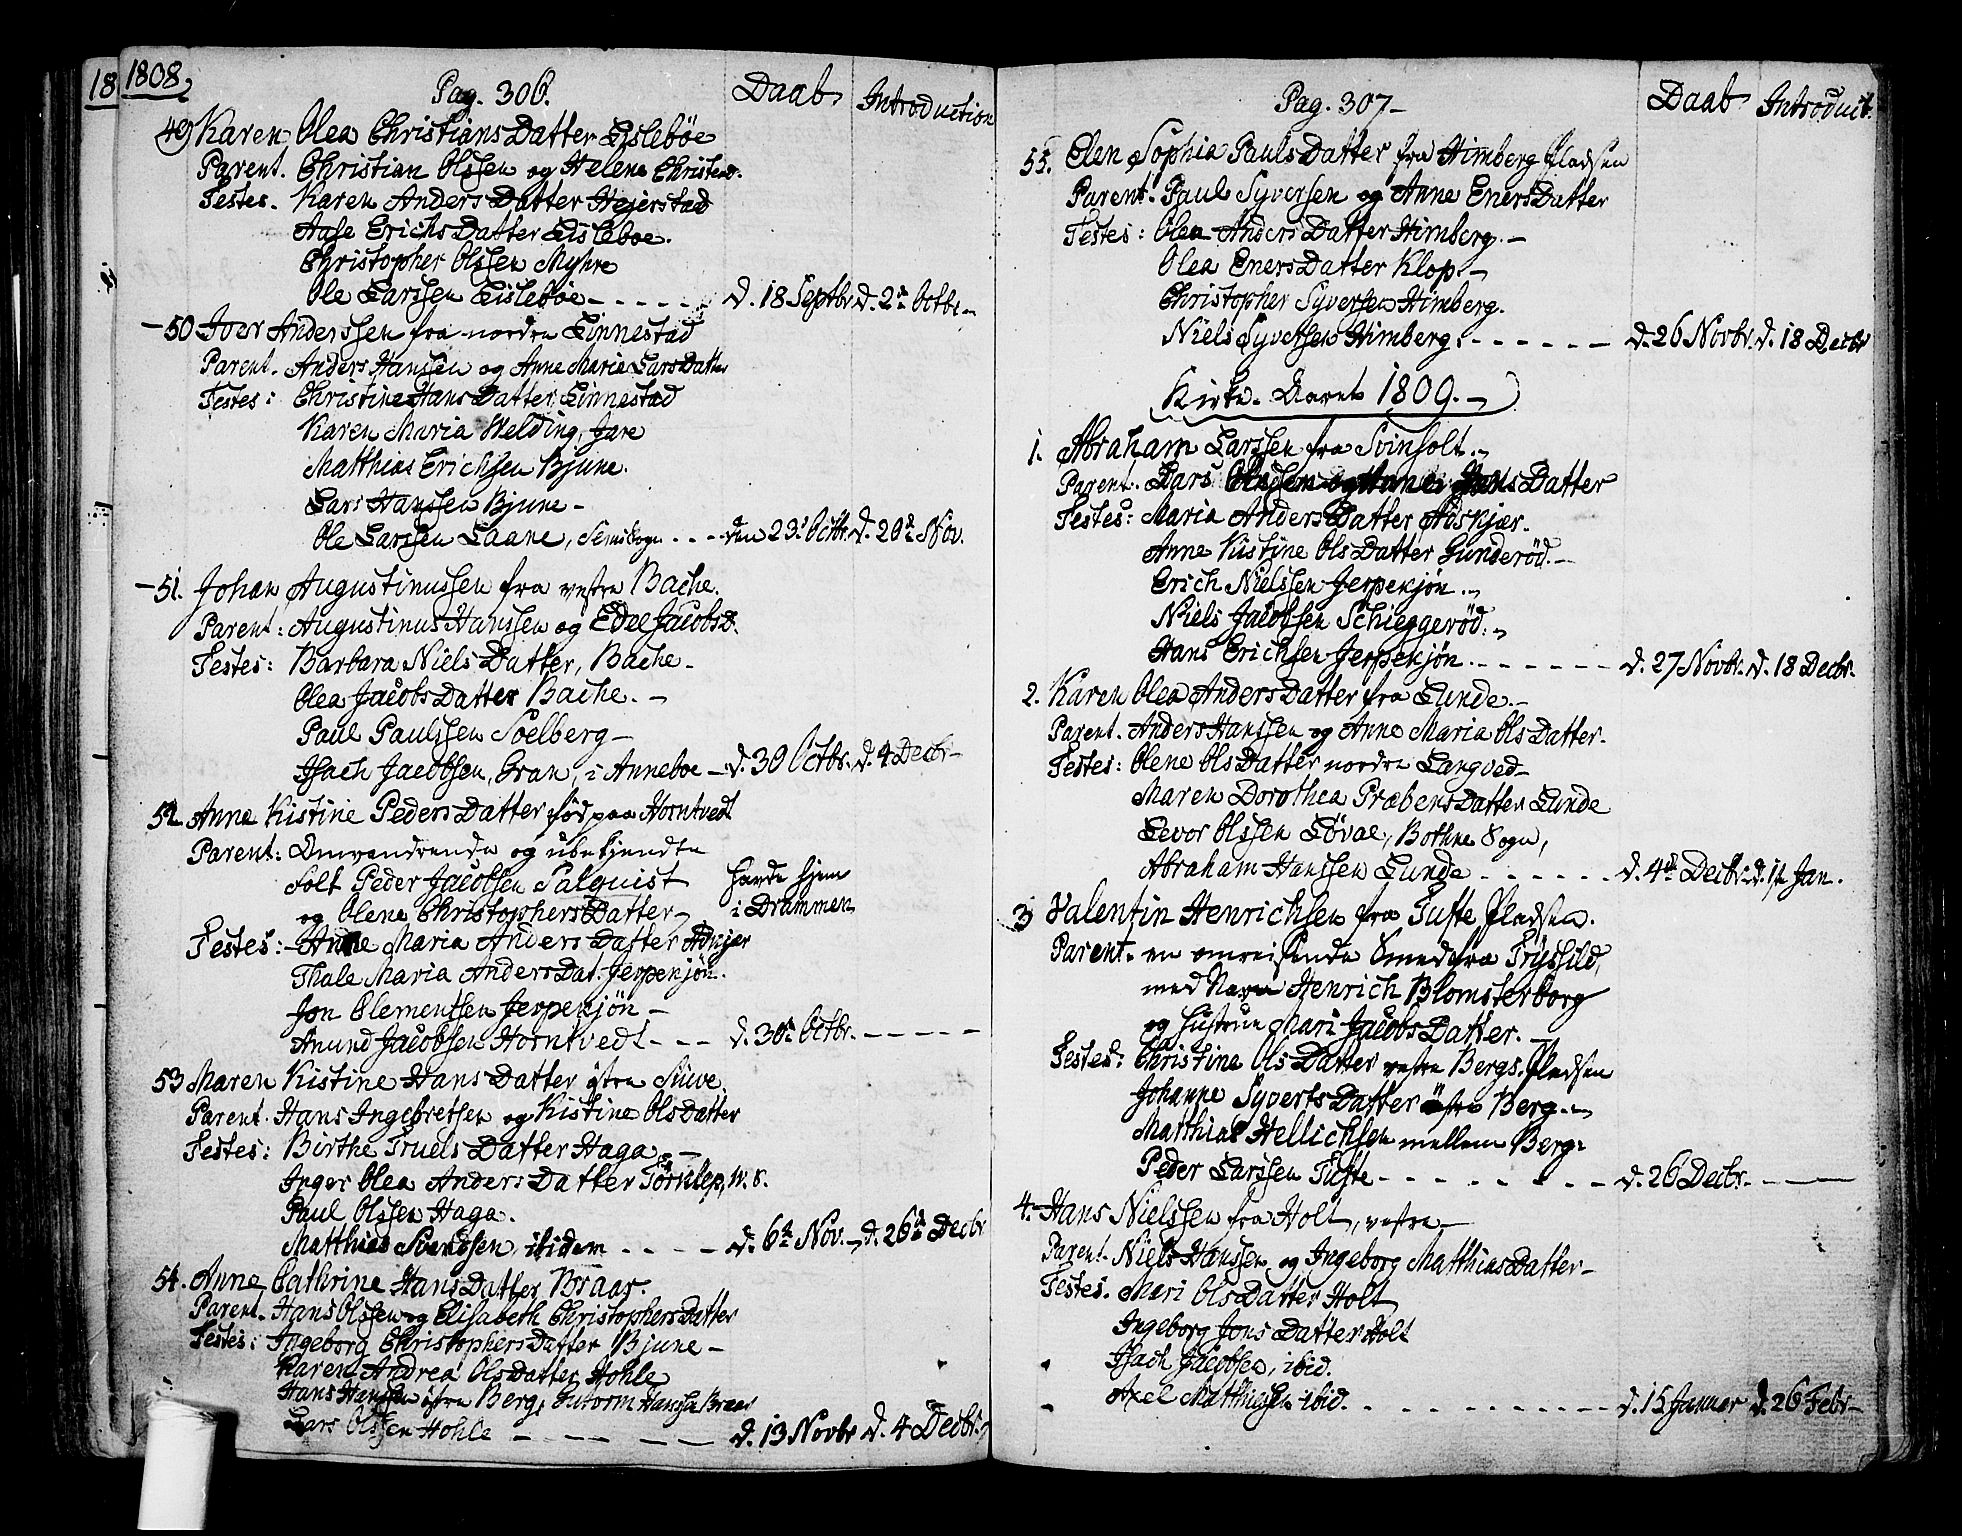 18
1808
Pag. 306.
Daab
Introduction
49 Karen Olea ChristiansDatter Eislebøe
Parent. Christian Olssen og Helene Christens.
Testes. Karen AndersDatter Hejerstad
Aase ErichsDatter Eisleboe.
Christopher Olssen Myhre
Ole Larssen Eislebøe - - - - - d. 18 Septbr d. 2den Octbr -
- 50 Joer Anderssen fra nordre Linnestad
Parent. Anders Hanssen og Anne Marie LarsDatter
Testes: Christine HansDatter Linnestad
Karen Maria Welding, Jare
Matthias Erichsen Bjune.
Lars Hanssen Bjune -
Ole Larssen Laane, Semsogn - - - den 23de Octbr. d. 20de Nov.
- 51. Johan Augustinussen fra vestre Bache.
Parent: Augustinus Hanssen og Edel JacobsD.
Testes: Barbara NielsDatter, Bache -
Olea JacobsDatter Bache. -
Paul Paulssen Solberg -
Isach Jacobsen, Gran, i Anneboe - d. 30 Octbr. d. 4 Decbr -
52 Anne Kistine PedersDatter fød paa Horntvedt
Parent: Omvandrende og ubekjendte
Folk Peder Jacobsen Salquist havde hjem
og Olene ChristophersDatter - i Drammen
Testes: - Anne Maria AndersDatter Adskjær
Thale Maria AndersDat. Jerpekjøn.
Jon Clementsen Jerpekjön -
Amund Jacobsen Horntvedt - - - d. 30de Octbr. - - - - -
53 Maren Kistine HansDatter østre Stuve.
Parent. Hans Ingebretsen og Kistine OlsDatter
Testes: Birthe TruelsDatter Haga -
Inger Olea AndersDatter Törklep, W. S.
Paul Olssen Haga.
Matthias Svendsen ibidem - - - - d. 6te Nov. - d. 26de Decbr
54. Anne Cathrine HansDatter Braar.
Parent. Hans Olssen og Elisabeth ChristophersDatter
Testes: Ingeborg ChristophersDatter Bjune -
Karen Andrea OlsDatter Hohle
Hans Hanssen østre Berg, Gutorm Hanssen Braar
Lars Olssen Hohle - - - - d. 13 Novbr d. 4 Decbr.
Pag. 307 -
Daab
Introduct.
55. Elen Sophia PaulsDatter fra Himberg Pladsen
Parent. Paul Syversen og Anne EnersDatter
Testes: Olea AndersDatter Himberg. -
Olea EnersDatter Klop. -
Christopher Syversen Himberg.
Niels Syversen Himberg. - - - - - - d. 26 Novbr. d. 18 Decbr
Kirke-Aaret 1809. -
1. Abraham Larssen fra Svinholt. -
Parent. Lars DDatter
Testes: Maria AndersDatter Adskjær.
Anne Kistine OlsDatter Gunderød. -
Erich Nielssen Jerpekjøn. -
Niels Jacobsen Schieggerød. -
Hans Erichsen Jerpekjøn. - - - - - - d. 27 Novbr. d. 18 Decbr.
2. Karen Olea AndersDatter fra Lunde. -
Parent. Anders Hanssen og Anne Maria OlsDatter.
Testes: Olene OlsDatter nordre Langved -
Maren Dorothea PræbensDatter Lunde
Levor Olssen Løvae, Bothne Sogn,
Abraham Hanssen Lunde - - - - - - d. 4de Decbr. d. 1te Jan.
3 Valentin Henrichsen fra Tufte Pladsen.
Parent. en omreisende Smed fra Trysild,
med Navn Henrich Blomsterborg
og Hustrue Mari JacobsDatter. -
Testes: Christine OlsDatter vestre Bergs Pladsen
Johanne SyvertsDatter østre Berg. -
Matthias Hellichsen mellem Berg.
Peder Larssen Tufte - - - - - - d. 26 Decbr. - - -
4. Hans Nielssen fra Holt, vestre -
Parent. Niels Hanssen og Ingeborg MatthiasDatter -
Testes. Mari OlsDatter Holt
Ingeborg JonsDatter Holt
Isach Jacobsen, ibid.
Axel Matthiesen ibid. - - - - - - d. 15 Januar d. 26 Febr -